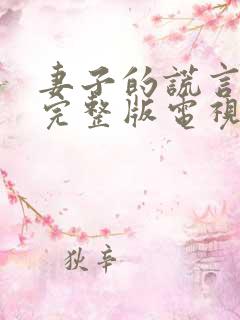 妻子的謊言
完整版電視
狄辛